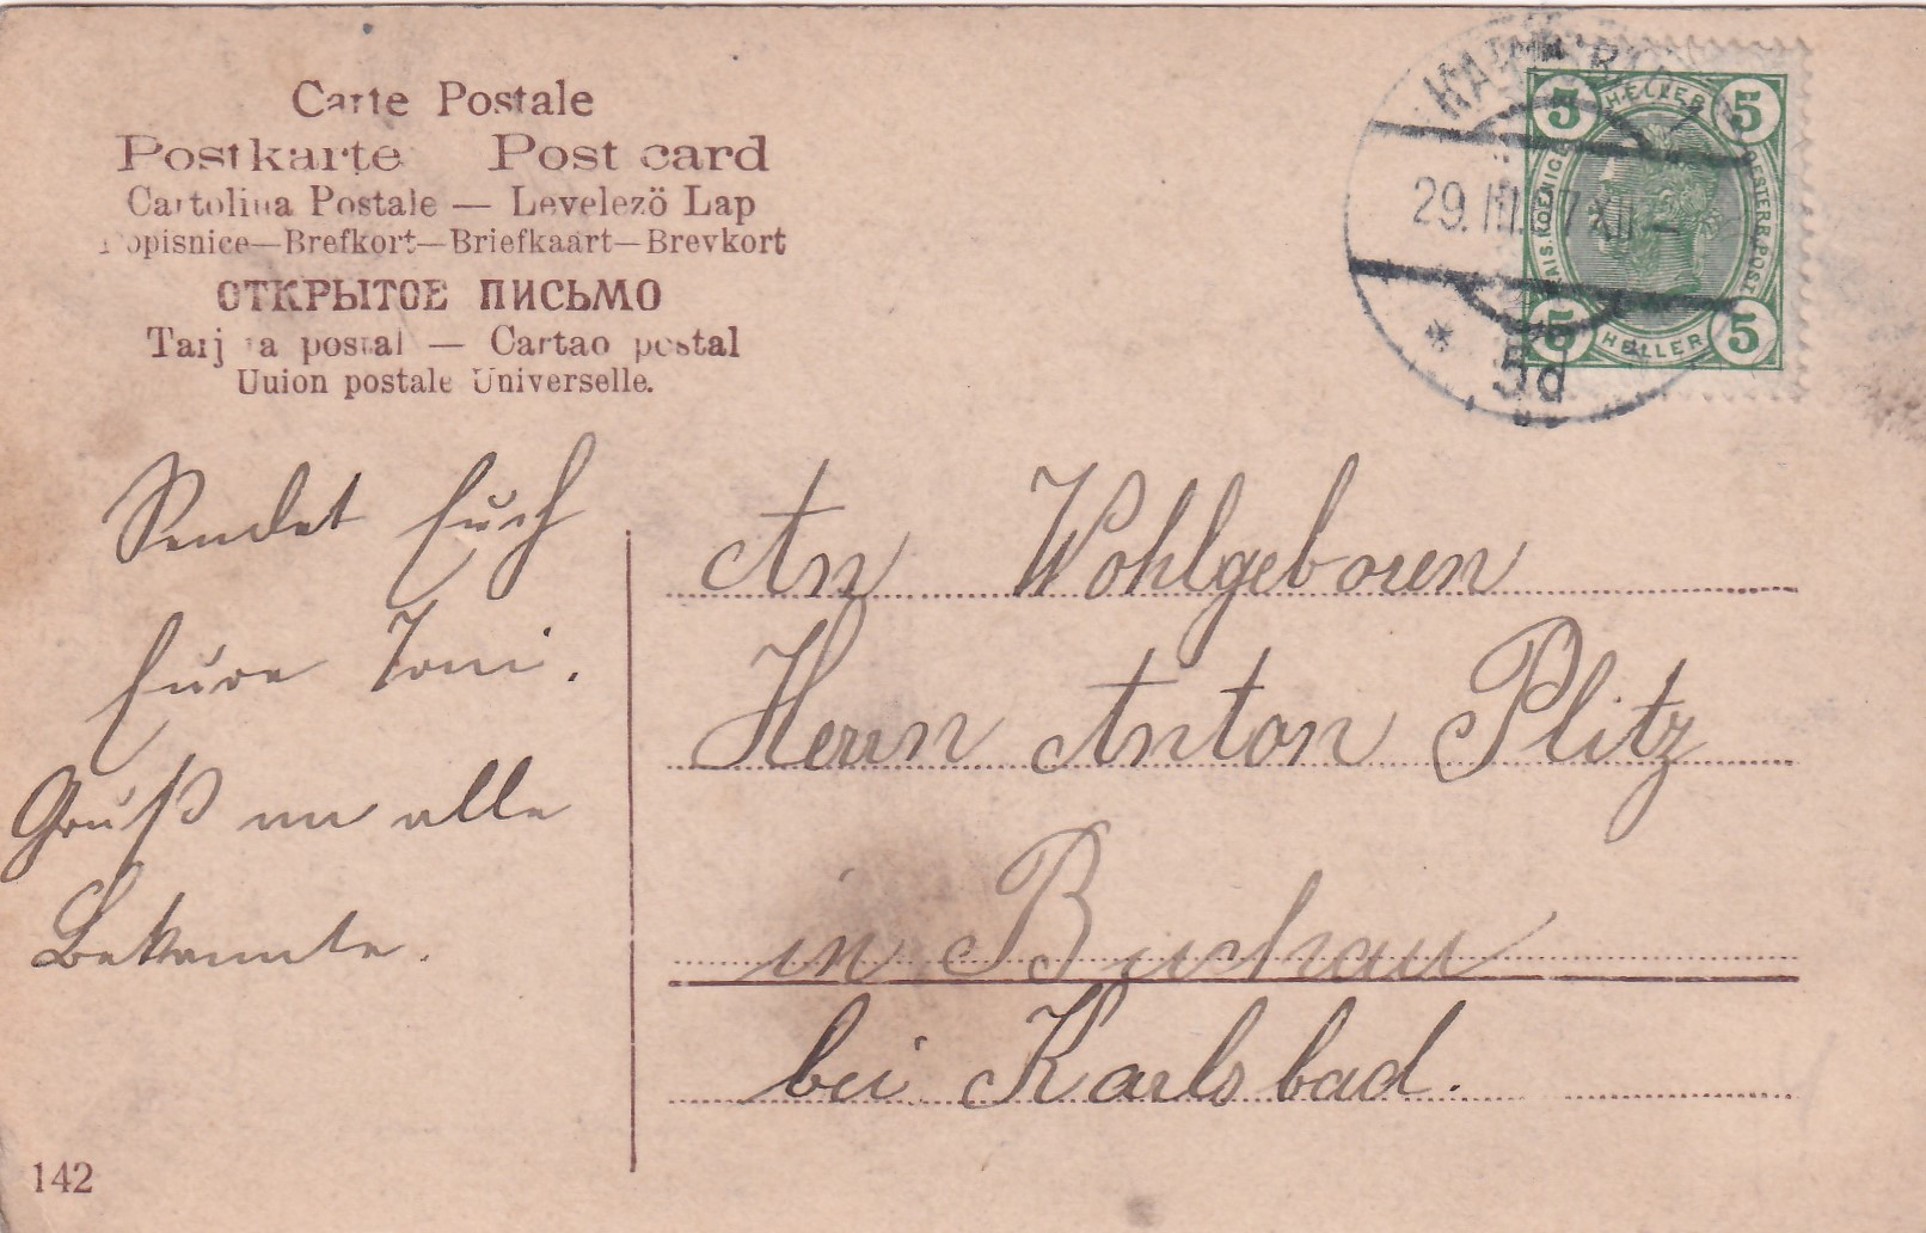 Carte Postale
Postkarte Post card
Cartolina Postale — Levelezö Lap
opisnice—Brefkort—Briefkaart—Brevkort
ОТКРЫТОЕ ПИСЬМО
Tarj ta postal — Cartao postal
Uuion postale Universelle.
29. III. 7 XII
5d
5 HELLER 5
KAIS. KOENIGL. OESTERR. POST
5 HELLER 5
Sendet Euch
Eure Toni.
Gruß an alle
Bekannte.
An Wohlgeboren
Herrn Anton Plitz
in Buchau
bei Karlsbad.
142